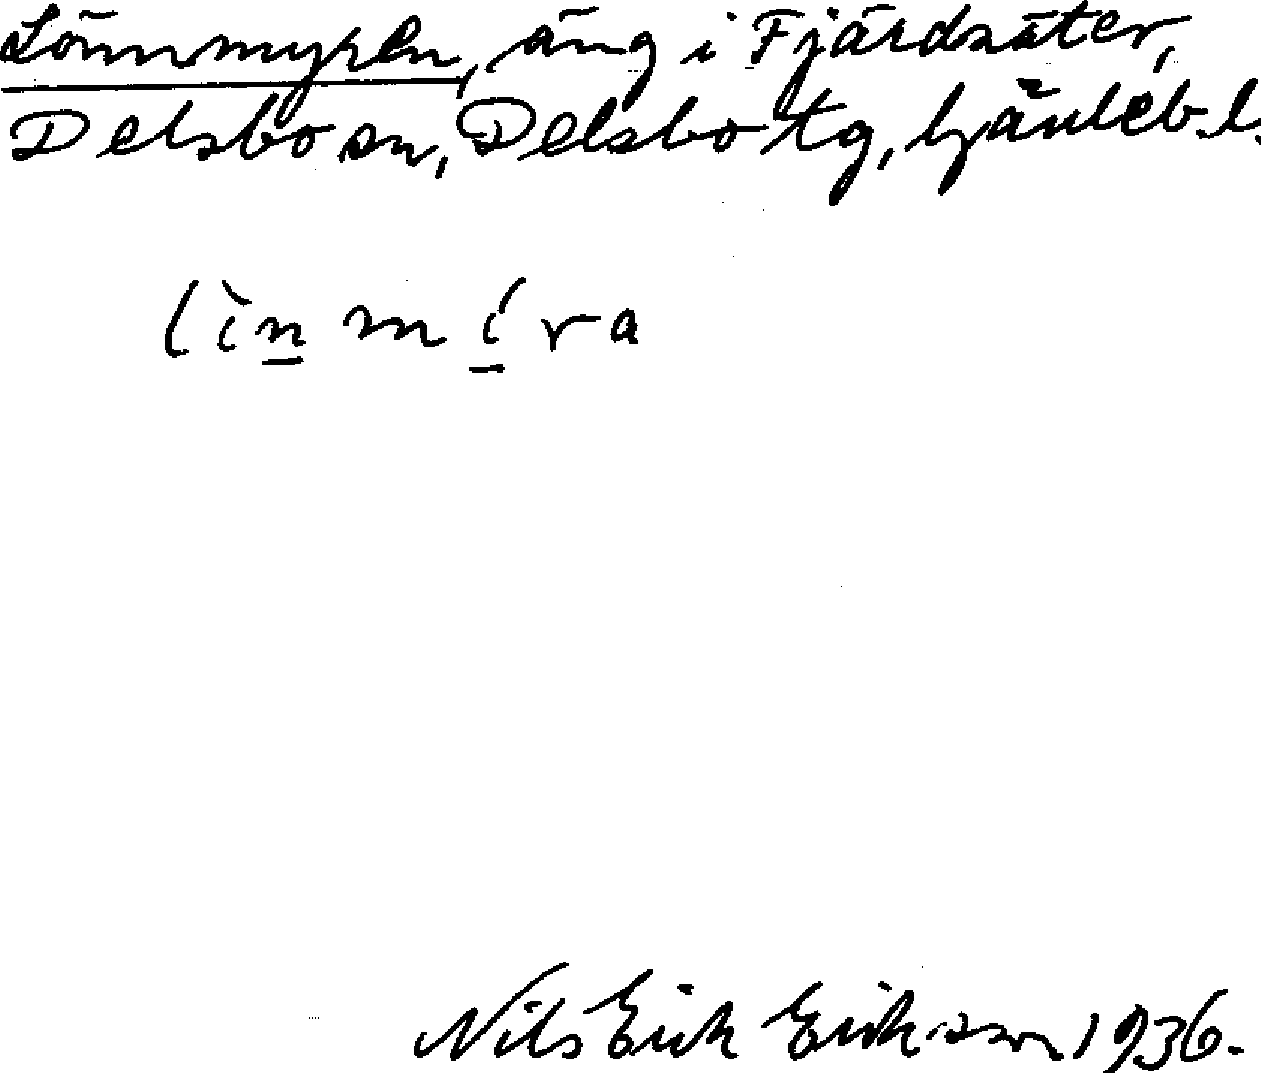 Lönnmyren, äng i Fjärdsäter,
Delsbo sn, Delsbo tg, Gävleb. l.
lìnmíra
Nils Erik Eriksson 1936.